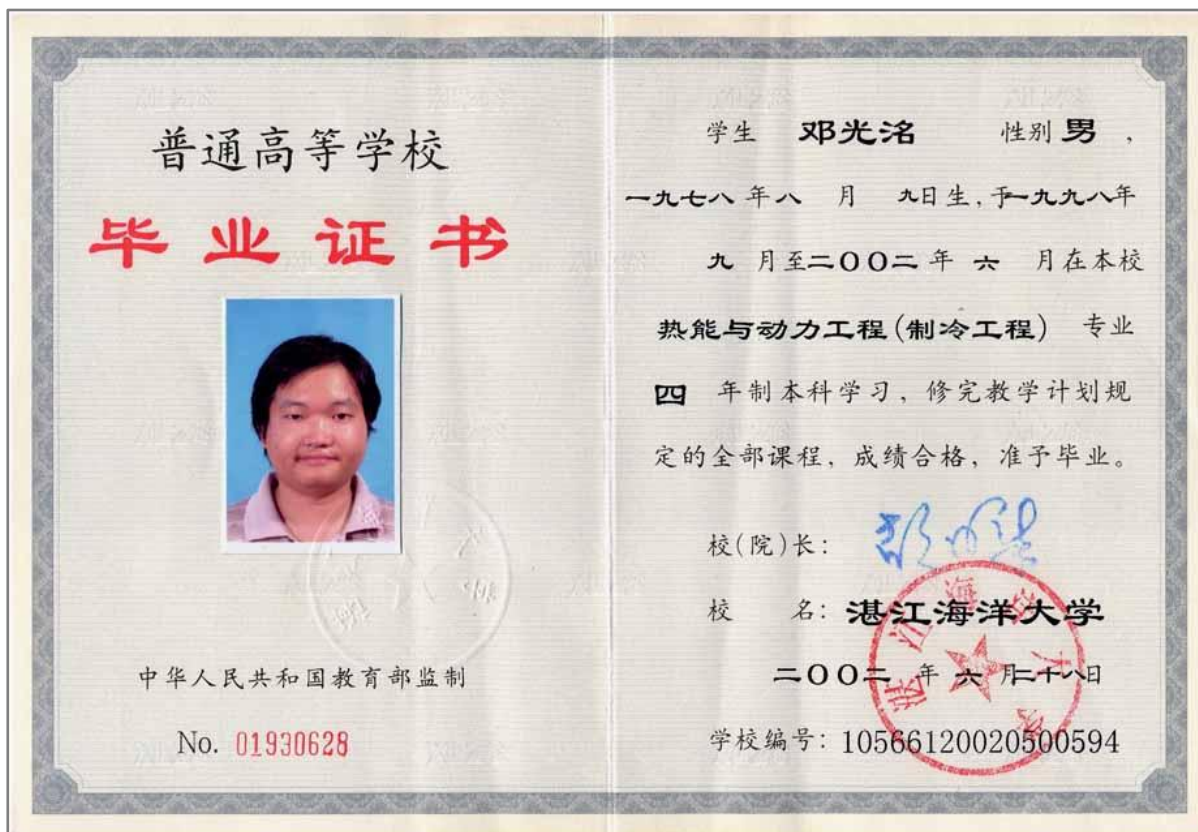 普通高等学校
毕业证书
中华人民共和国教育部监制
No. 01930628
学生 邓光洺 性别 男 ,
一九七八 年 八 月 九日生, 于一九九八年
九 月至二〇〇二 年 六 月在本校
热能与动力工程(制冷工程) 专业
四 年制本科学习, 修完教学计划规
定的全部课程, 成绩合格, 准予毕业。
校(院)长:
校 名: 湛江海洋大学
二〇〇二 年 六 月二十八日
学校编号: 10566120020500594
湛江海洋大学